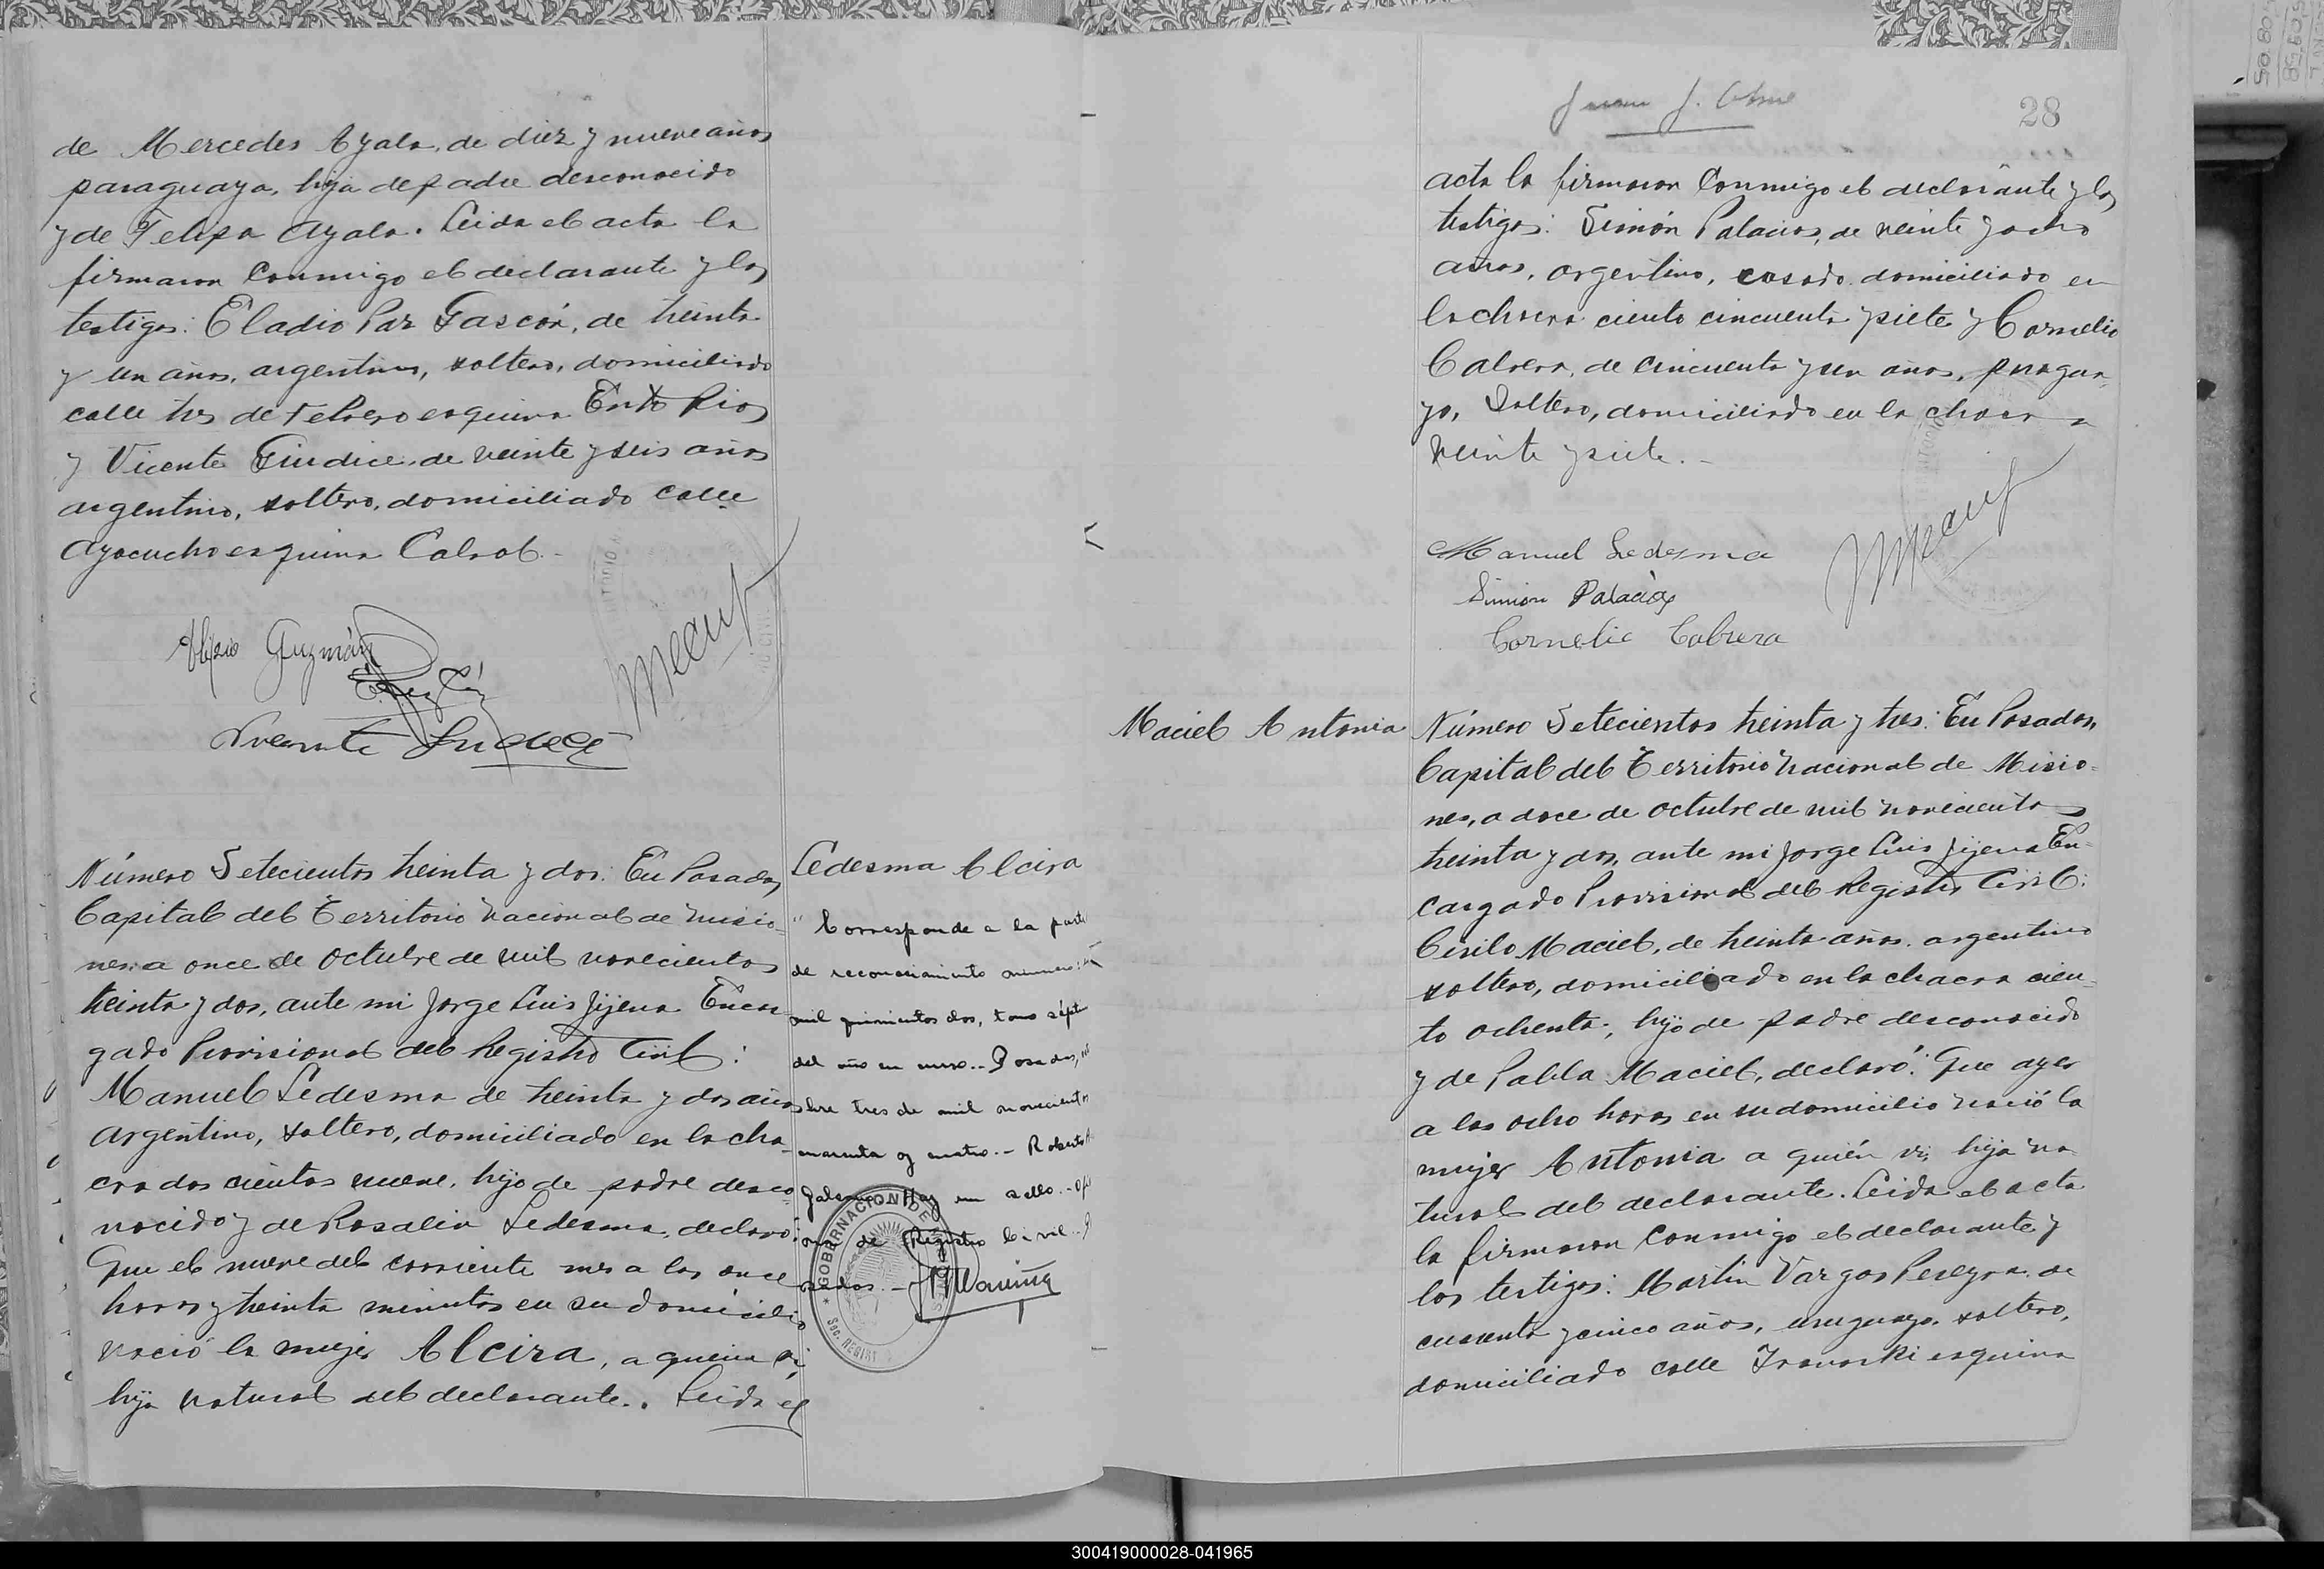 de Mercedes Ayala, de diez y nueve años
paraguaya, hija de padre desconocido
y de Felipa Ayala. Leida el acta la
firmaron conmigo el declarante y los
testigos: Eladio Paz Gascón, de treinta
y un años, argentino, soltero, domiciliado
calle tres de Febrero esquina Entre Rios
y Vicente Giudice, de veinte y seis años
argentino, soltero, domiciliado calle
Ayacucho esquina Cabral.-
Guzmán
Vicente Giudice
Número Setecientos treinta y dos: En Posadas,
Capital del Territorio Nacional de Misio-
nes, a once de Octubre de mil novecientos
treinta y dos, ante mi Jorge Luis Jijena Encar-
gado Provisional del Registro Civil:
Manuel Ledesma de treinta y dos años
argentino, soltero, domiciliado en la cha-
cra dos cientos nueve, hijo de padre desco-
nocido y de Rosalia Ledesma, declaró:
Que el nueve del corriente mes a las once
horas y treinta minutos en su domicilio
nació la mujer Alcira, a quien vi,
hija natural del declarante. Leida el
Ledesma Alcira
"Corresponde a la parte
de reconocimiento número
mil quinientos dos, tomo séptimo
del año en curso.- Posadas,
bre tres de mil novecientos
cuarenta y cuatro.- Roberto
Hay un sello.-
de Registro Civil.-
sadas.-
GOBERNACION DE
Sec. REGIST
28
acta la firmaron conmigo el declarante y los
testigos: Simón Palacios, de veinte y ocho
años, argentino, casado domiciliado en
la chacra ciento cincuenta y siete y Cornelio
Cabrera, de cincuenta y un años, paragua-
yo, soltero, domiciliado en la chacra
veinte y siete.-
Manuel Ledesma
Simion Palacios
Cornelio Cabrera
Maciel Antonia
Número Setecientos treinta y tres: En Posadas,
Capital del Territorio Nacional de Misio-
nes, a doce de octubre de mil novecientos
treinta y dos, ante mi Jorge Luis Jijena En-
cargado Provisional del Registro Civil:
Cirilo Maciel, de treinta años, argentino
soltero, domiciliado en la chacra cien-
to ochenta, hijo de padre desconocido
y de Pabla Maciel, declaró: Que ayer
a las ocho horas en su domicilio nació la
mujer Antonia a quién vi, hija na-
tural del declarante. Leida el acta
la firmaron conmigo el declarante y
los testigos: Martin Vargas Pereyra de
cuarenta y cinco años, uruguayo, soltero,
domiciliado calle esquina
300419000028-041965